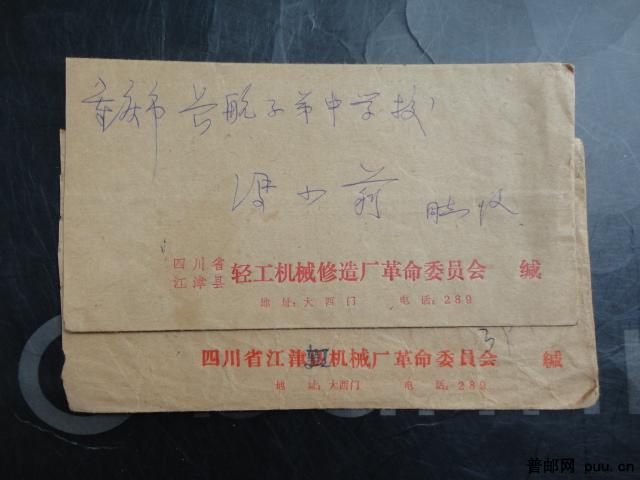 重庆市长航子弟中学校
小莉 同志收
四川省
江津县 轻工机械修造厂革命委员会 缄
地址:大西门 电话:289
四川省江津轻工机械厂革命委员会 缄
地址:大西门 电话:289
普邮网 puu.cn